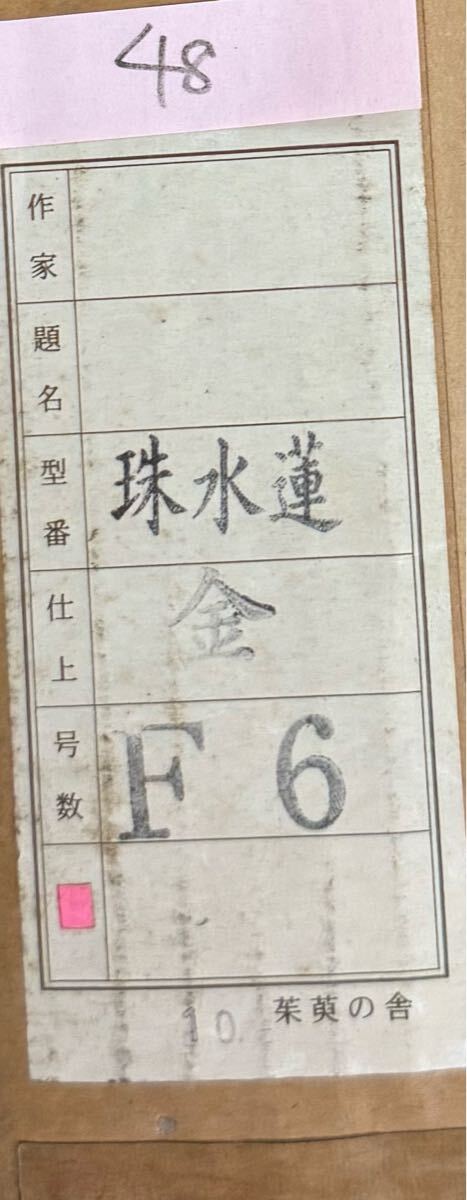 48
作家
題名
型番 珠水蓮
仕上 金
号数 F 6
10 茱萸の舎